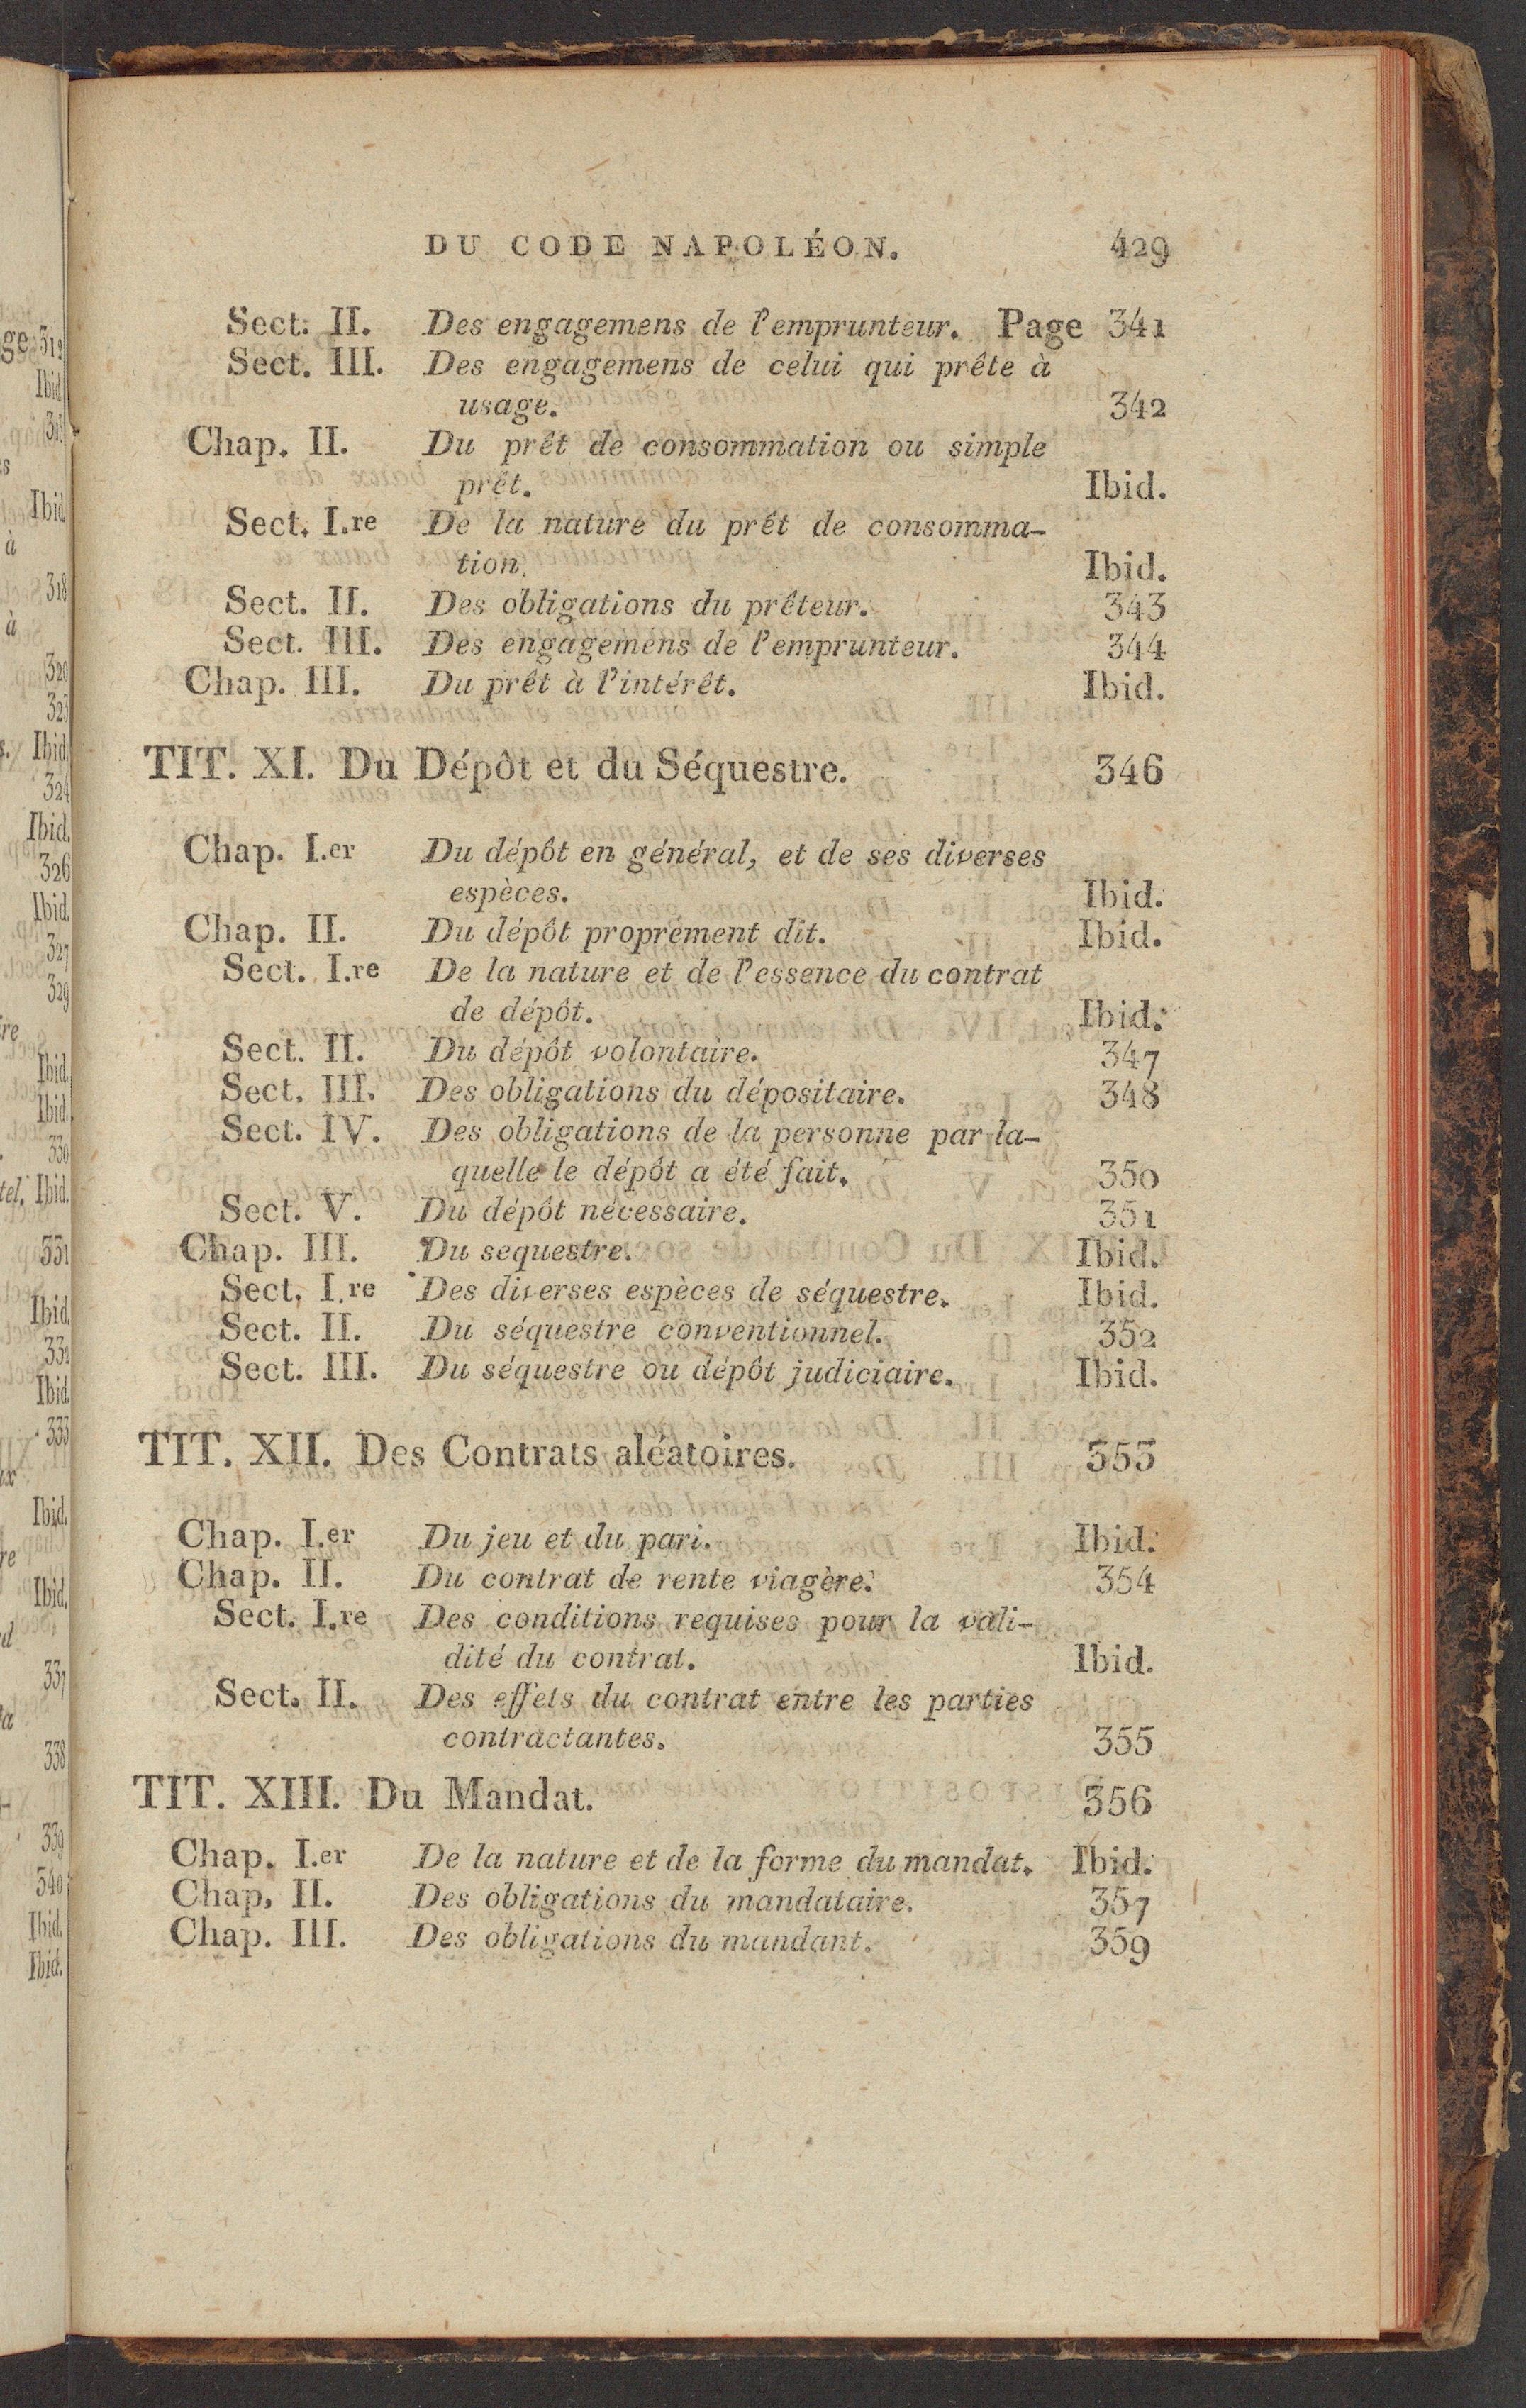 DU CODE NAPOLÉON. 429
Sect. II. Des engagemens de l'emprunteur. Page 341
Sect. III. Des engagemens de celui qui prête à
usage. 342
Chap. II. Du prêt de consommation ou simple
prêt. Ibid.
Sect. I.re De la nature du prêt de consomma-
tion. Ibid.
Sect. II. Des obligations du prêteur. 343
Sect. III. Des engagemens de l'emprunteur. 344
Chap. III. Du prêt à l'intérêt. Ibid.
TIT. XI. Du Dépôt et du Séquestre. 346
Chap. I.er Du dépôt en général, et de ses diverses
espèces. Ibid.
Chap. II. Du dépôt proprement dit. Ibid.
Sect. I.re De la nature et de l'essence du contrat
de dépôt. Ibid.
Sect. II. Du dépôt volontaire. 347
Sect. III. Des obligations du dépositaire. 348
Sect. IV. Des obligations de la personne par la-
quelle le dépôt a été fait. 350
Sect. V. Du dépôt nécessaire. 351
Chap. III. Du sequestre. Ibid.
Sect. I.re Des diverses espèces de séquestre. Ibid.
Sect. II. Du séquestre conventionnel. 352
Sect. III. Du séquestre ou dépôt judiciaire. Ibid.
TIT. XII. Des Contrats aléatoires. 353
Chap. I.er Du jeu et du pari. Ibid.
Chap. II. Du contrat de rente viagère. 354
Sect. I.re Des conditions requises pour la vali-
dité du contrat. Ibid.
Sect. II. Des effets du contrat entre les parties
contractantes. 355
TIT. XIII. Du Mandat. 356
Chap. I.er De la nature et de la forme du mandat. Ibid.
Chap. II. Des obligations du mandataire. 357
Chap. III. Des obligations du mandant. 359